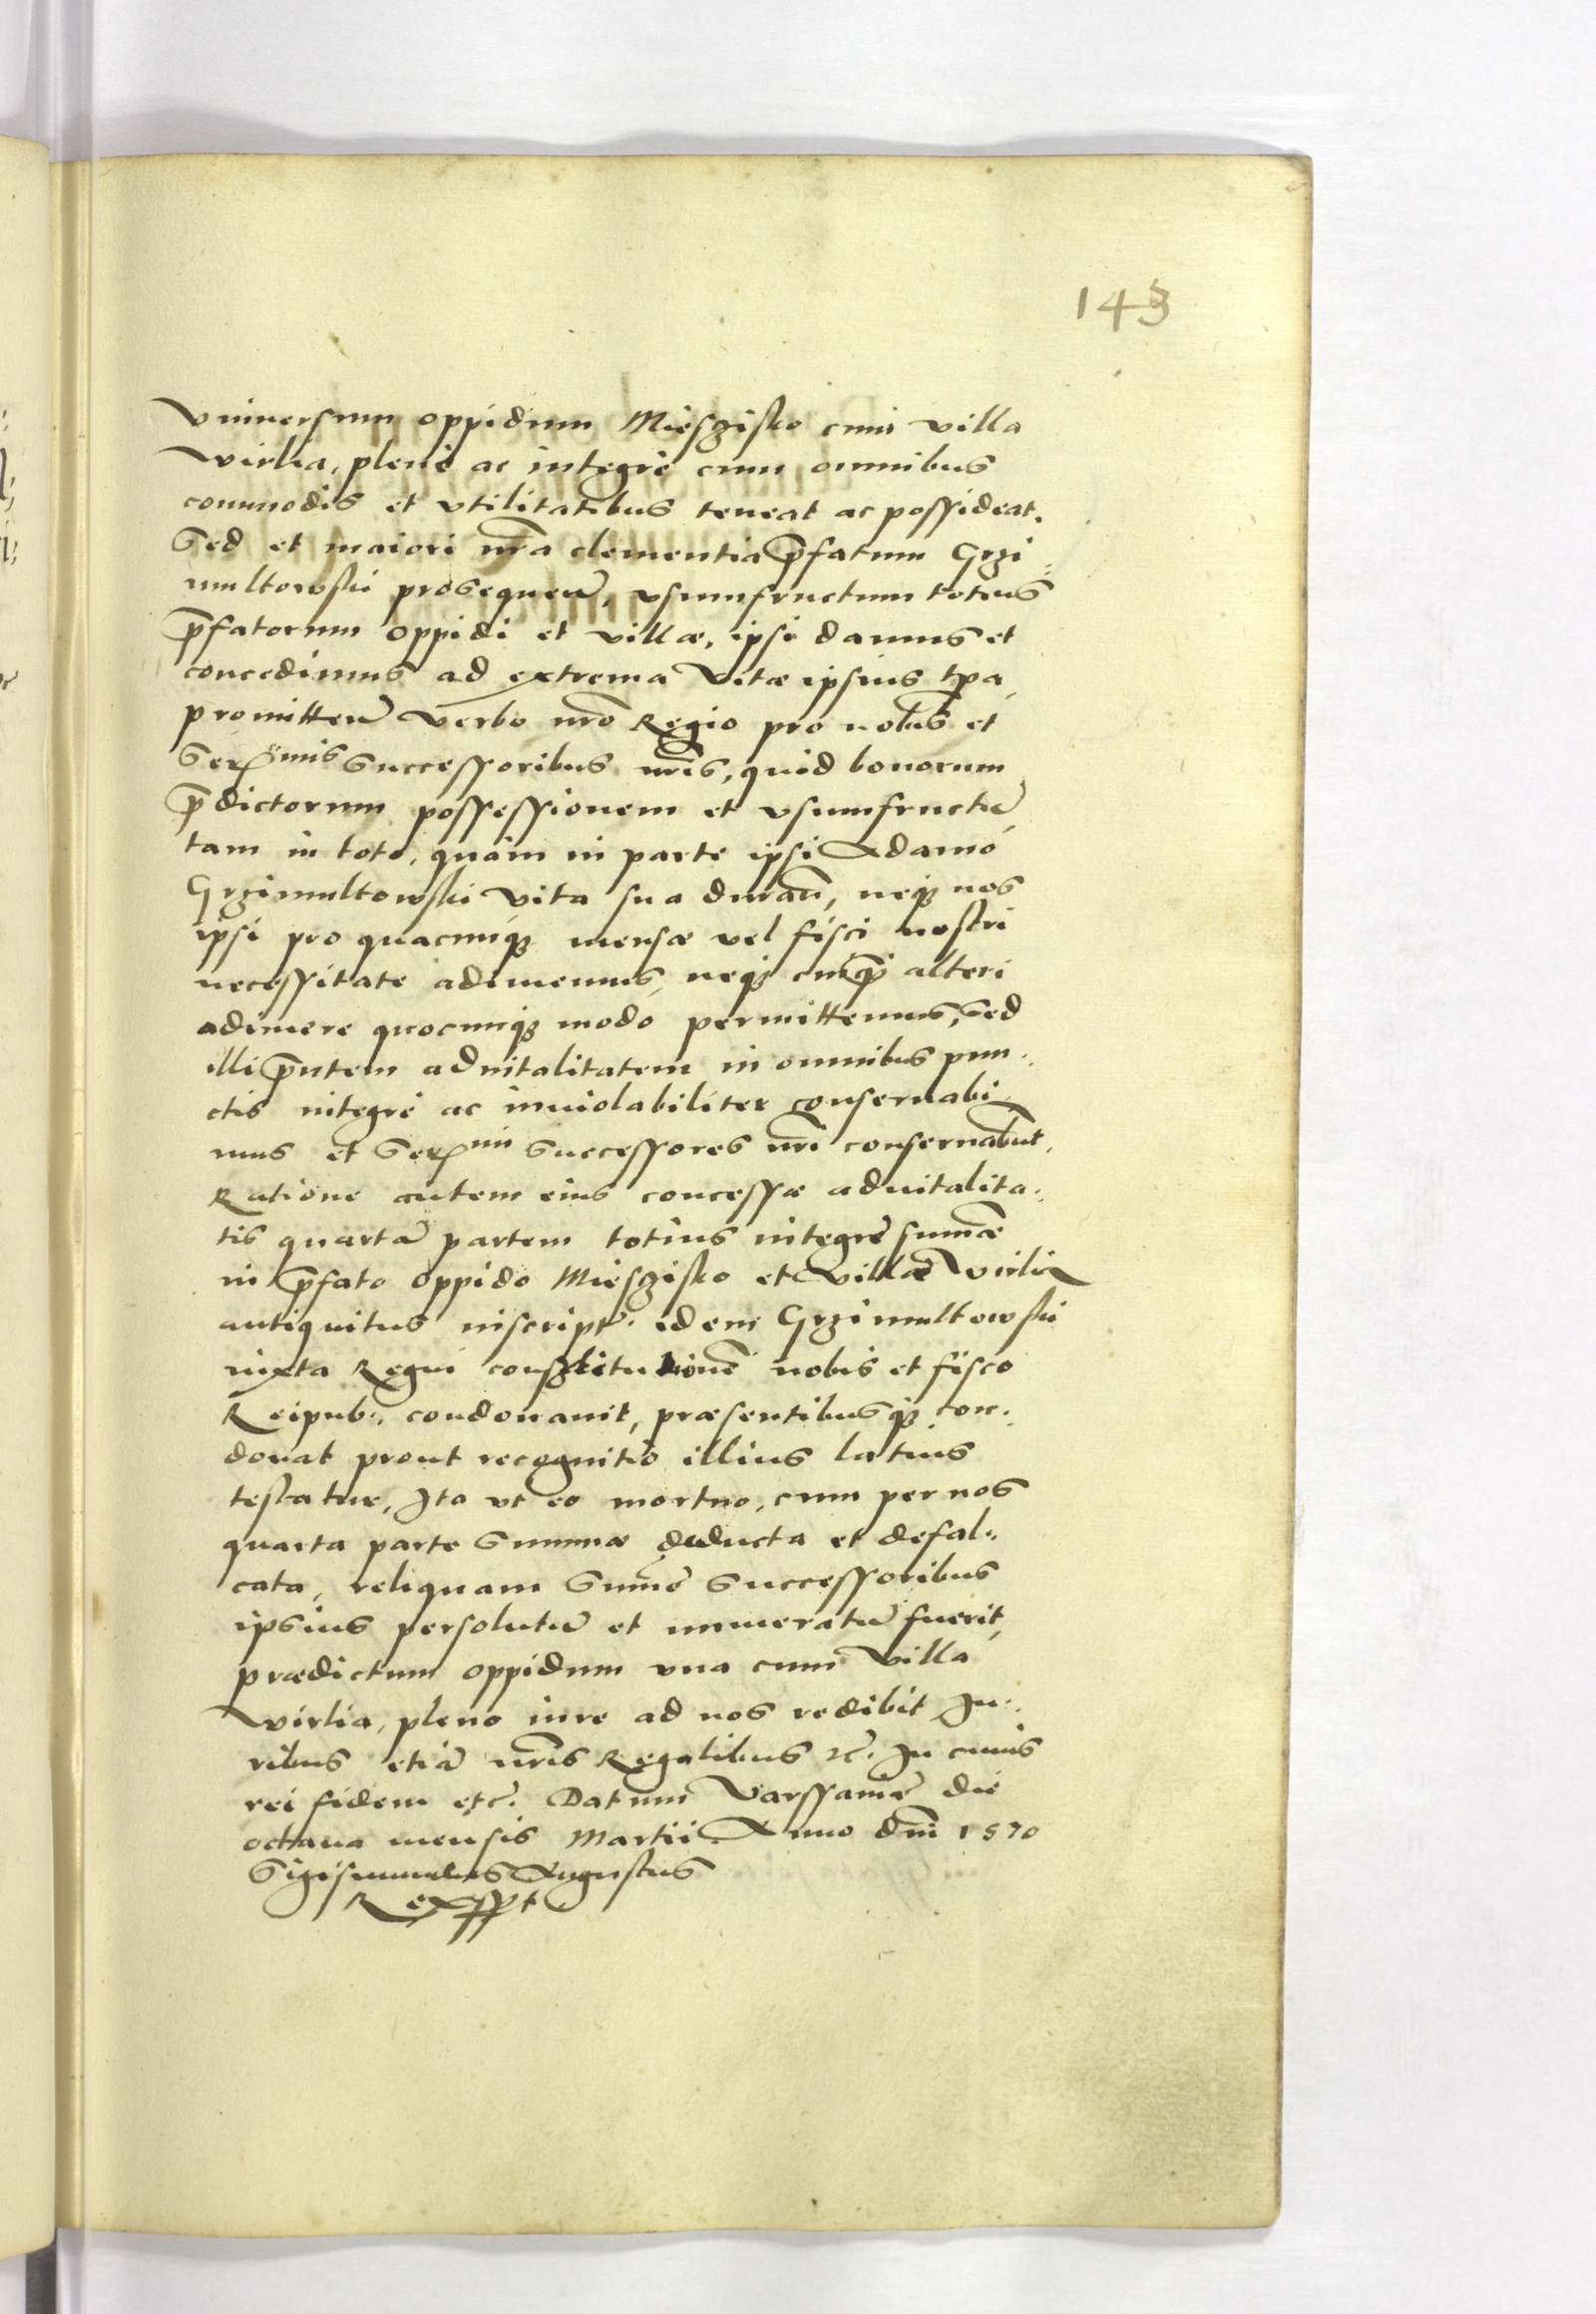 143
Vniuersum oppidum Mieszisko cum villa
Wirlia, plene ac integrè cum omnibus
commodis et vtilitatibus teneat ac possideat.
Sed et maiori nr̃a clementia p̃fatum Grzi=
multowski prosequeñ, vsumfructum totius
p̃fatorum oppidi et villæ, ipsi damus et
concedimus ad extrema vitæ ipsius tp̃a,
promitteñ verbo nr̃o Regio pro nobis et
Ser{mis} Successoribus nr̃is, quid bonorum
p̃dictorum possessionem et vsumfructũ
tam in toto, quàm in parte ipsi Adamo
Grzimultowski vita sua durañ, neq3 nos
ipsi pro quacunq3 mensæ vel fisci nostri
necessitate adimemus, neq3 cuiq̃ alteri
adimere quocunq3 modo permittemus, sed
illi p̃ntem aduitalitatem in omnibus pun=
ctis integrè ac inuiolabiliter conseruabi
mus et Ser{mi} Successores nr̃i conseruabũt.
Ratione autem eius concessæ aduitalita=
tis quartã partem totius integre sum̃æ
in p̃fato oppido Mieszisko et Villæ Virlia
antiquitus inscript. idem Grzimultowski
iuxta Regni constitutionẽ nobis et fisco
Reipub:, condonauit, præsentibusq3 con=
donat prout recognitio illius latius
testatur, Ita vt eo mortuo, cum per nos
quarta parte Summæ deducta et defal=
cata, reliquam Sum̃e Successoribus
ipsius persolutũ et numeratũ fuerit,
prædictum oppidum vna cum Villa
Virlia, pleno iure ad nos redibit Iu=
ribus etiã nr̃is Regalibus etc. In cuius
rei fidem etc. Datum Varssauiæ die
octaua mensis Martii Anno dñi 1570
Sigismundus Augustus
Rex sspt